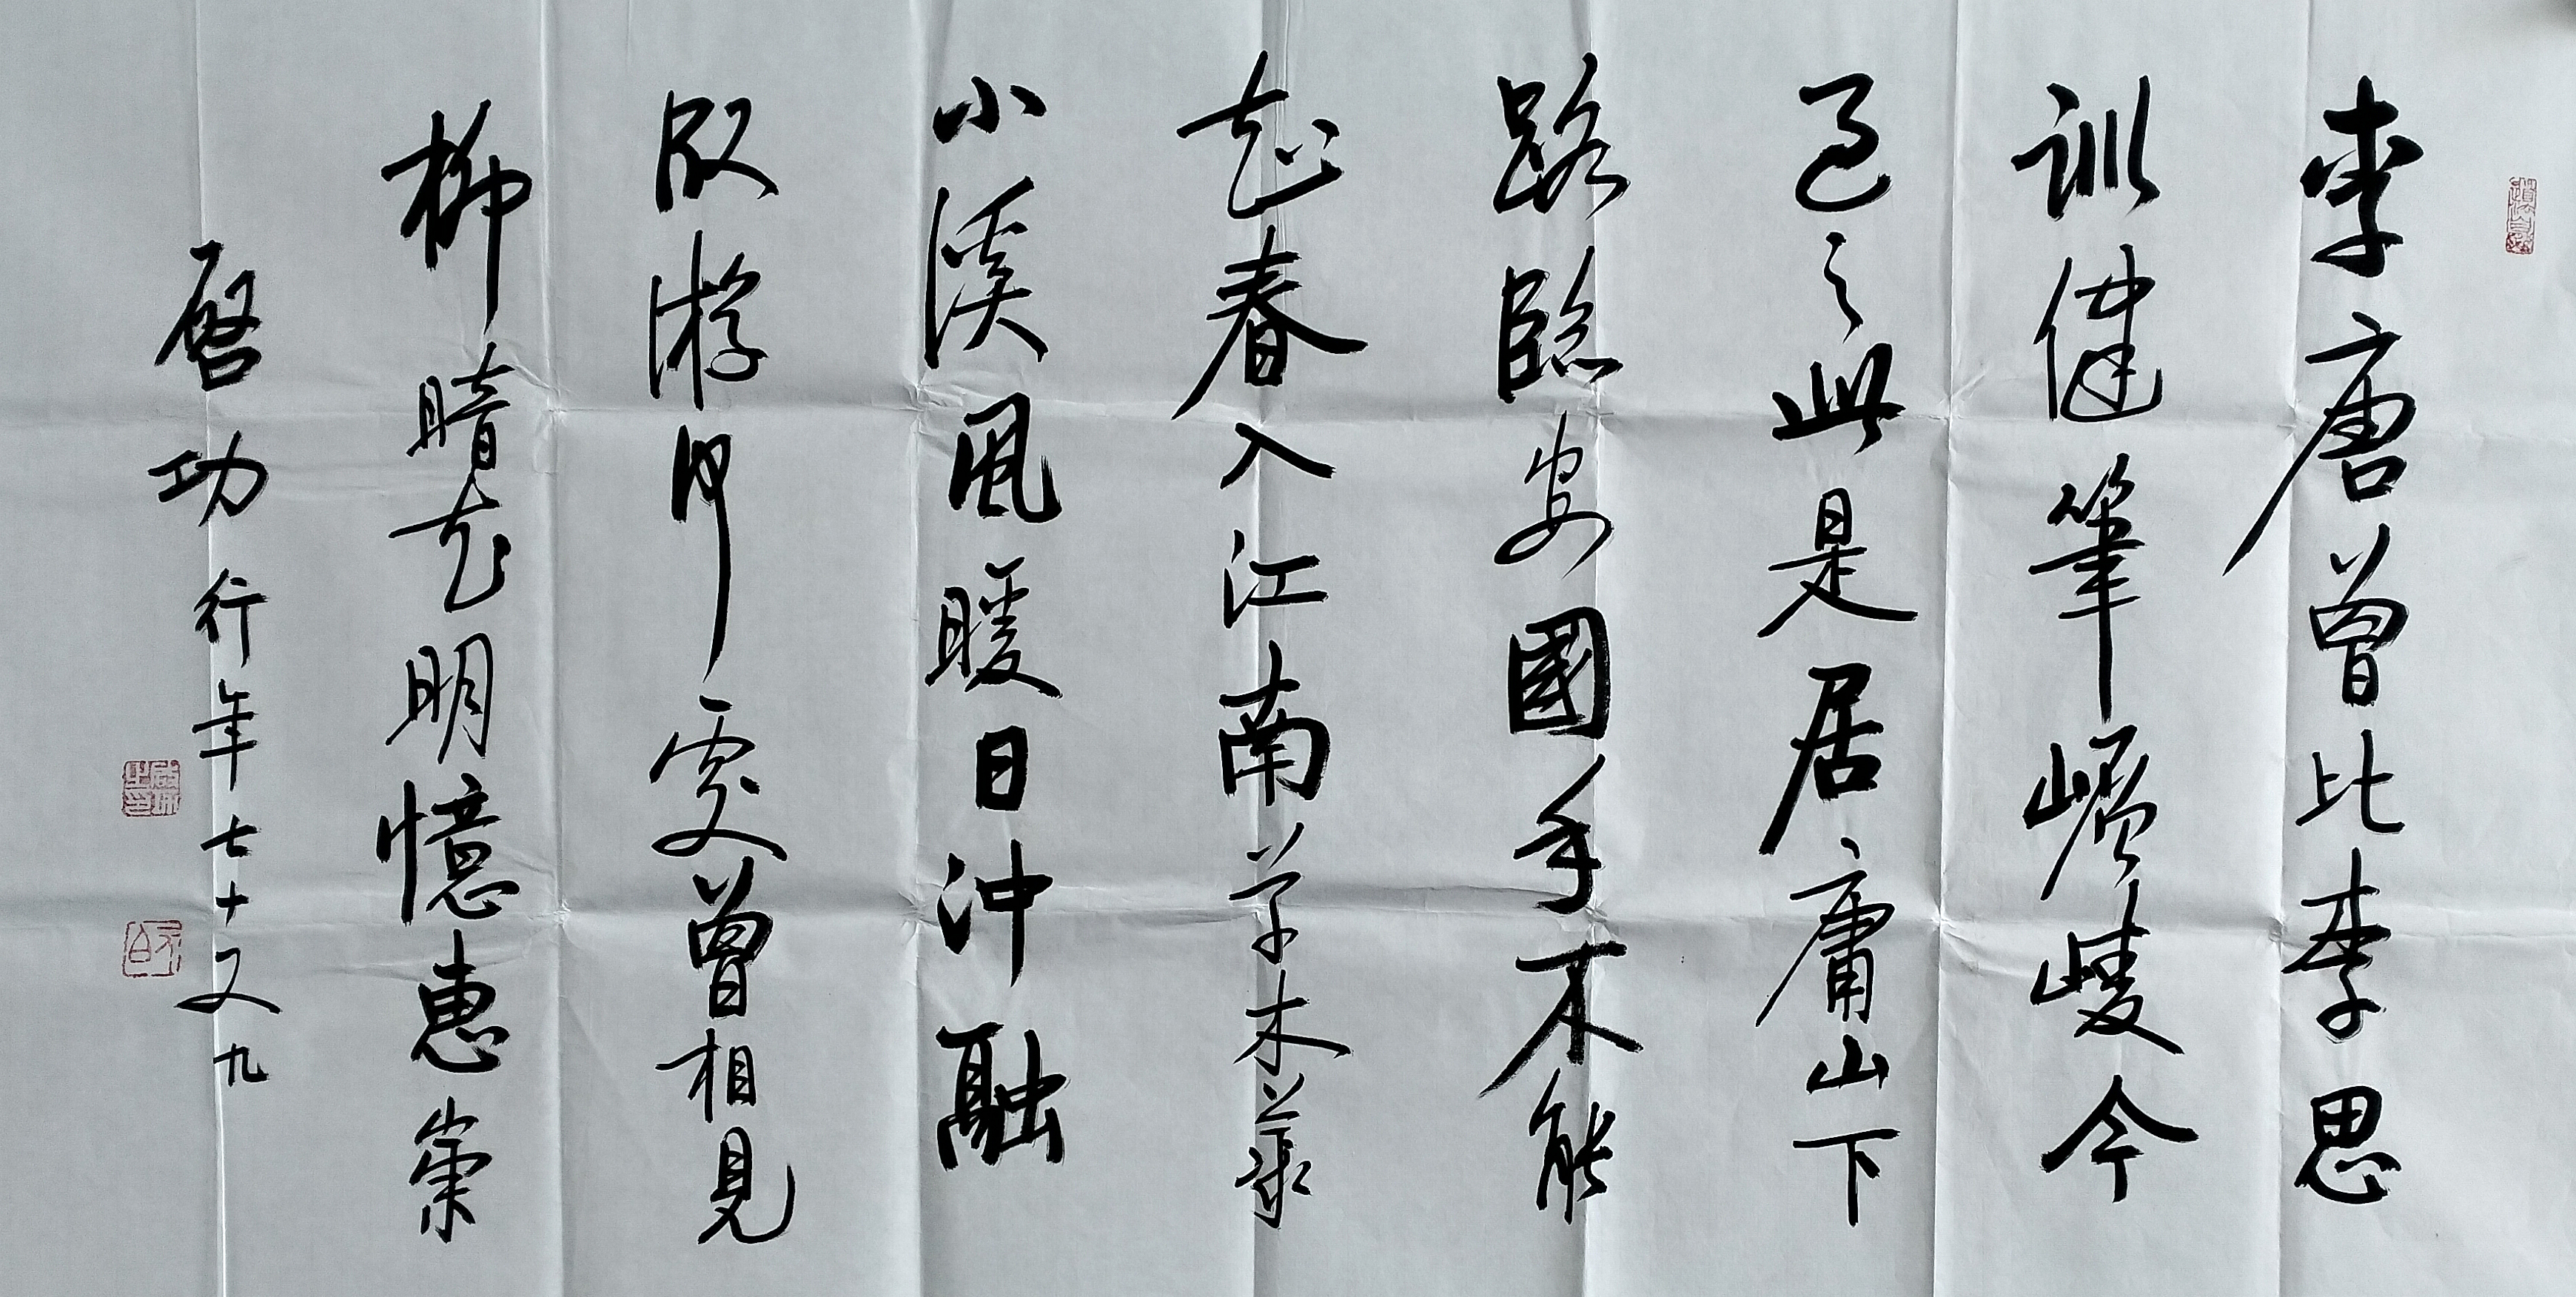 李唐曾比李思
訓健筆崚嶒今
過之此是居庸山下
路臨安國手不能
知春入江南草木蘇
小溪風暖日沖融
服游何處曾相見
柳暗花明憶惠崇
啓功行年七十又九